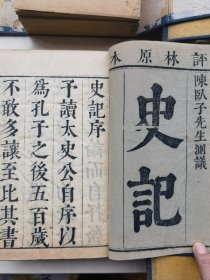 評林原本
陳臥子先生測議
史記
史記序
予讀太史公自序以
為孔子之後五百歲
不敢多讓至比其書